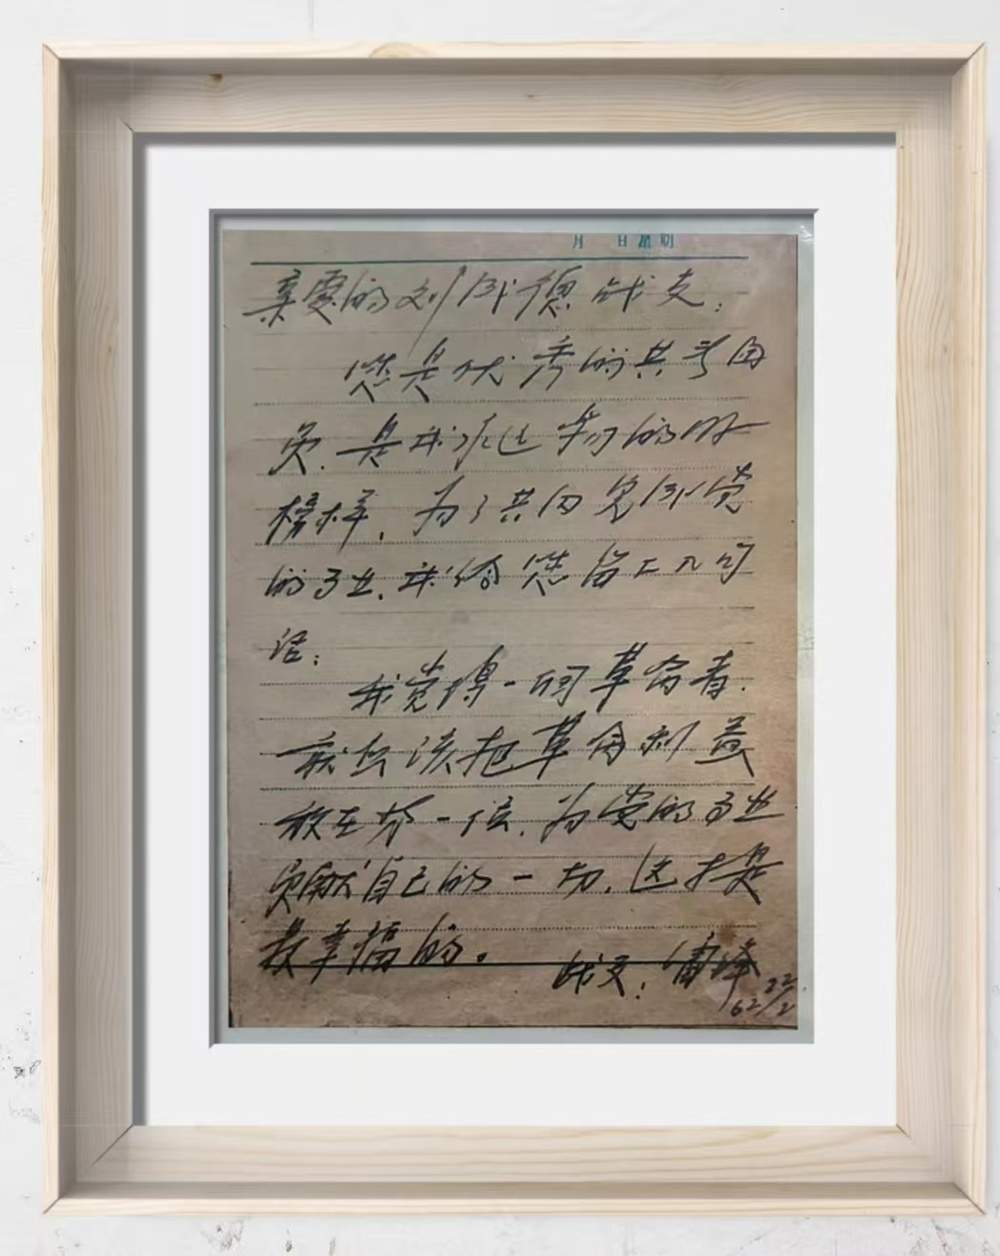 月 日 星期
亲爱的刘成德战友：
您是优秀的共青团
员，是我永远学习的好
榜样，为了共同完成党
的事业，我给您留下几句
话：
我觉得一个革命者，
就应该把革命利益
放在第一位，为党的事业
贡献自己的一切，这才是
最幸福的。
战友：雷锋
62 22/2